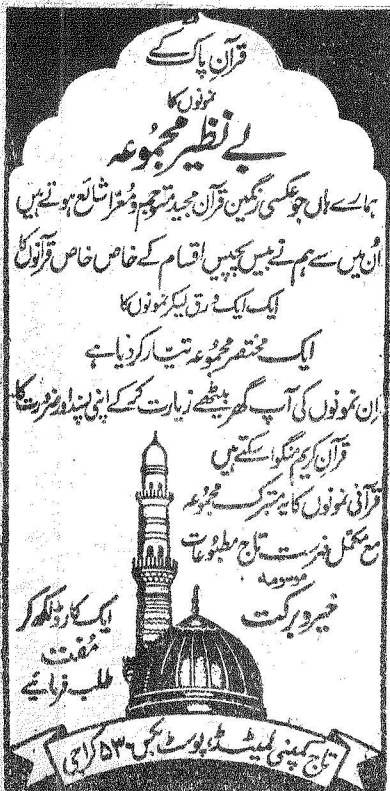 قرآنِ پاک کے
نمونوں کا
بے نظیر مجُموعہ
ہمارے ہاں جو عکسی رنگین قرآن مجید مترجم و مُعرّا شائع ہوتے ہیں
اُن میں سے ہم نے بیس پچیس اقسام کے خاص خاص قرآنوں کا
ایک ایک ورق لیکر نمونوں کا
ایک مختصر مجموعہ تیّار کر دیا ہے
اِن نمونوں کی آپ گھر بیٹھے زیارت کر کے اپنی پسند اور ضرورت کا
قرآنِ کریم منگوا سکتے ہیں
قرآنی نمونوں کا یہ متبرک مجموعہ
مع مکمّل فہرست تاج مطبُوعات
موسومہ
خیر و برکت
ایک کارڈ لکھ کر
مُفت
طلب فرمائیے
تاج کمپنی لمیٹڈ، پوسٹ بکس ۵۳۰ کراچی